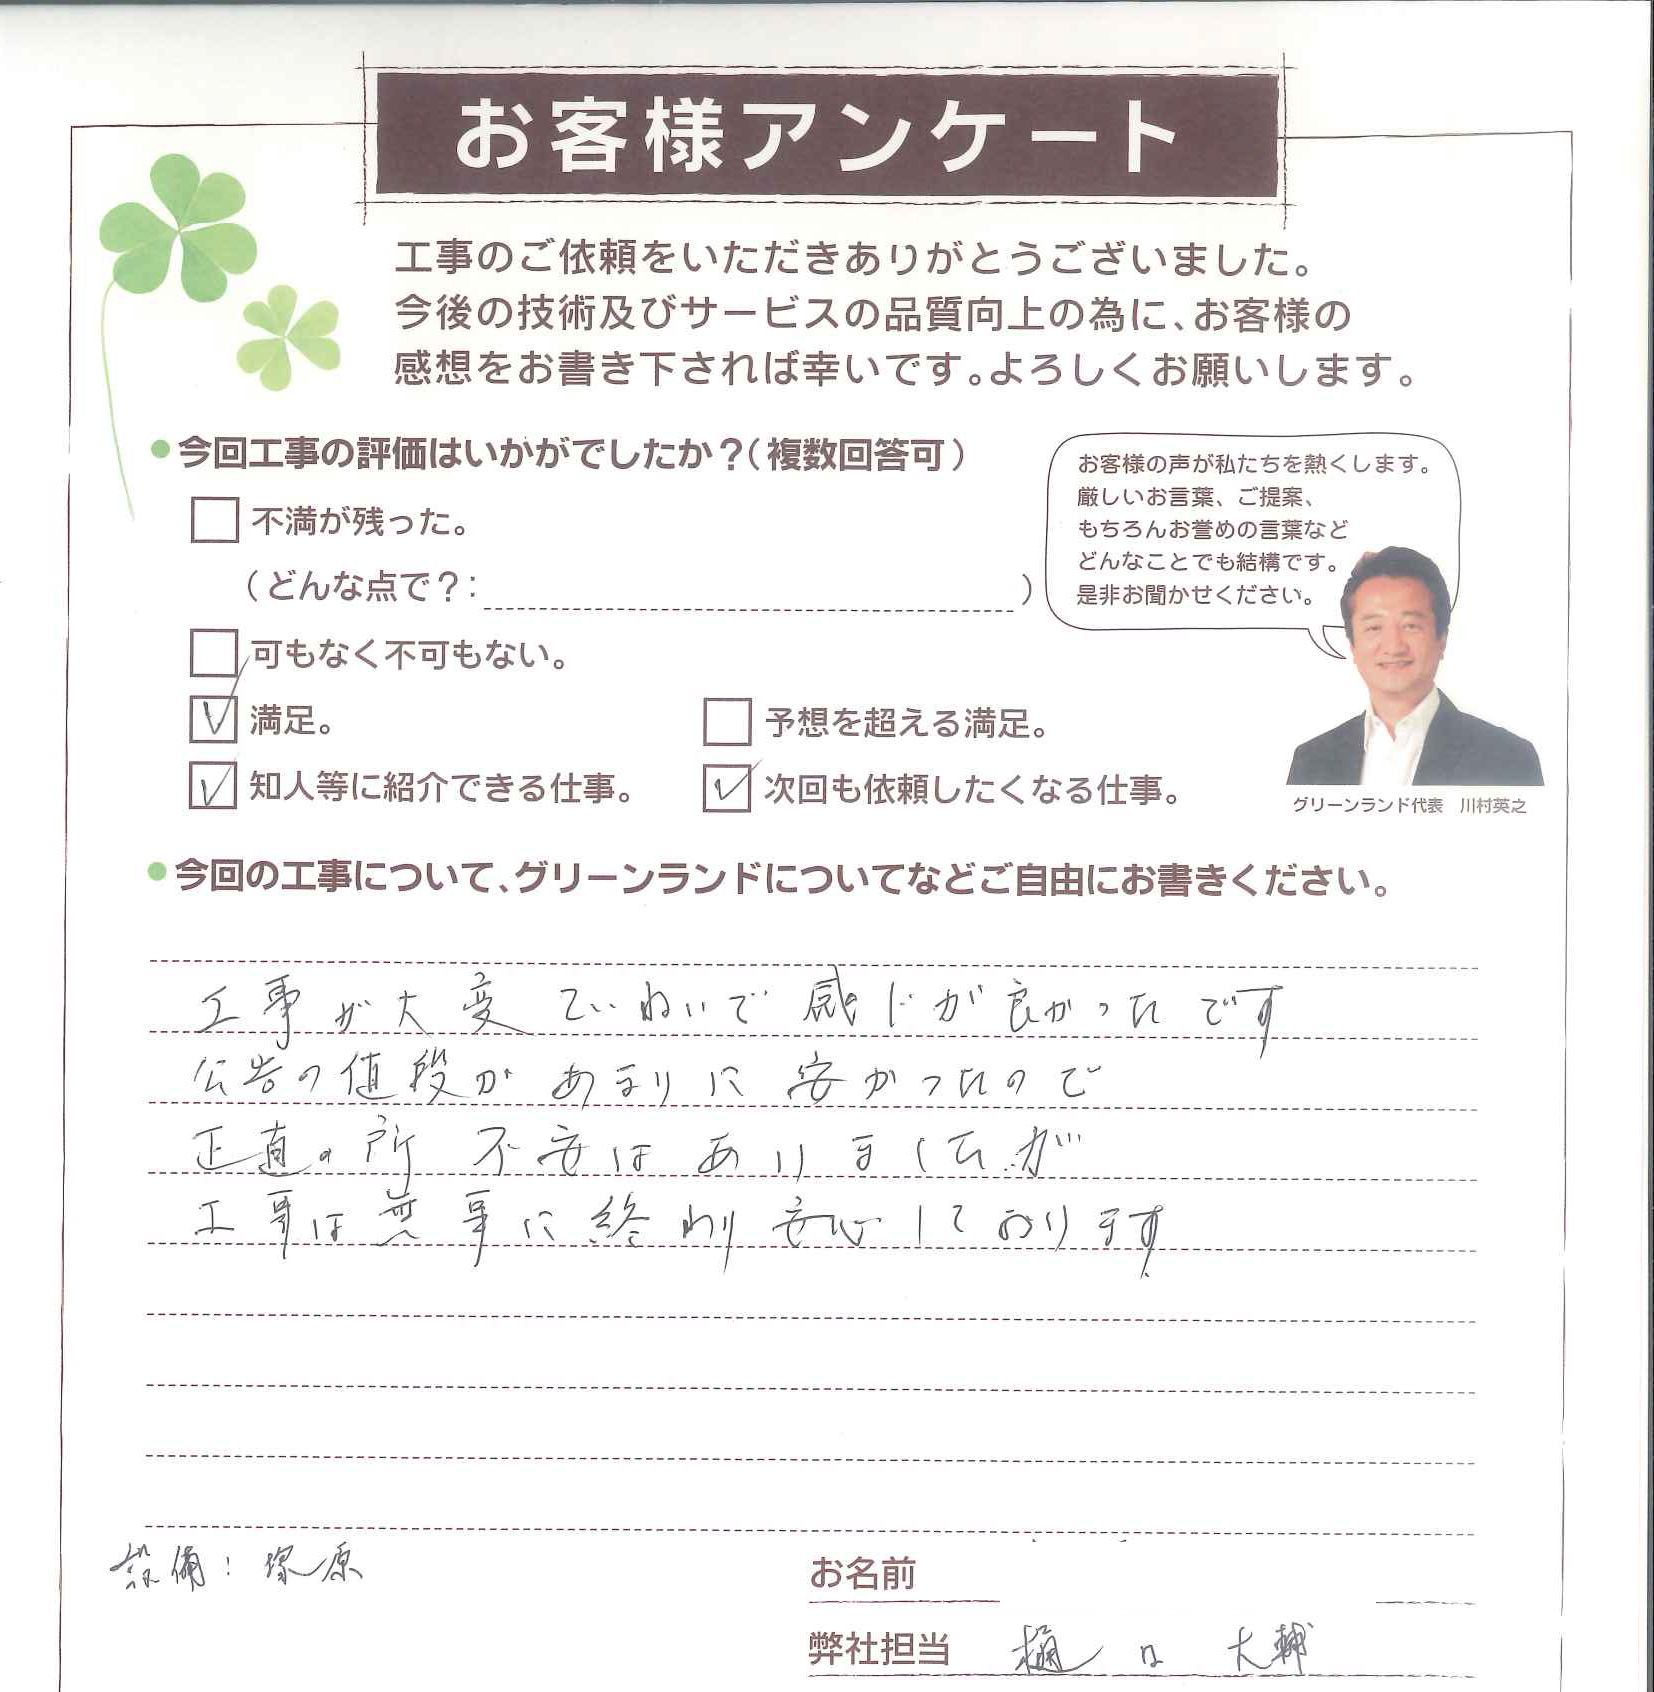 お客様アンケート
工事のご依頼をいただきありがとうございました。
今後の技術及びサービスの品質向上の為に、お客様の
感想をお書き下されば幸いです。よろしくお願いします。
●今回工事の評価はいかがでしたか？（複数回答可）
不満が残った。
（どんな点で？：　）
可もなく不可もない。
満足。
予想を超える満足。
知人等に紹介できる仕事。
次回も依頼したくなる仕事。
お客様の声が私たちを熱くします。
厳しいお言葉、ご提案、
もちろんお誉めの言葉など
どんなことでも結構です。
是非お聞かせください。
グリーンランド代表　川村英之
●今回の工事について、グリーンランドについてなどご自由にお書きください。
工事が大変ていねいで感じが良かったです
公告の値段があまりに安かったので
正直の所 不安はありましたが
工事は無事に終わり安心しております
設備：塚原
お名前
弊社担当 樋口 大輔